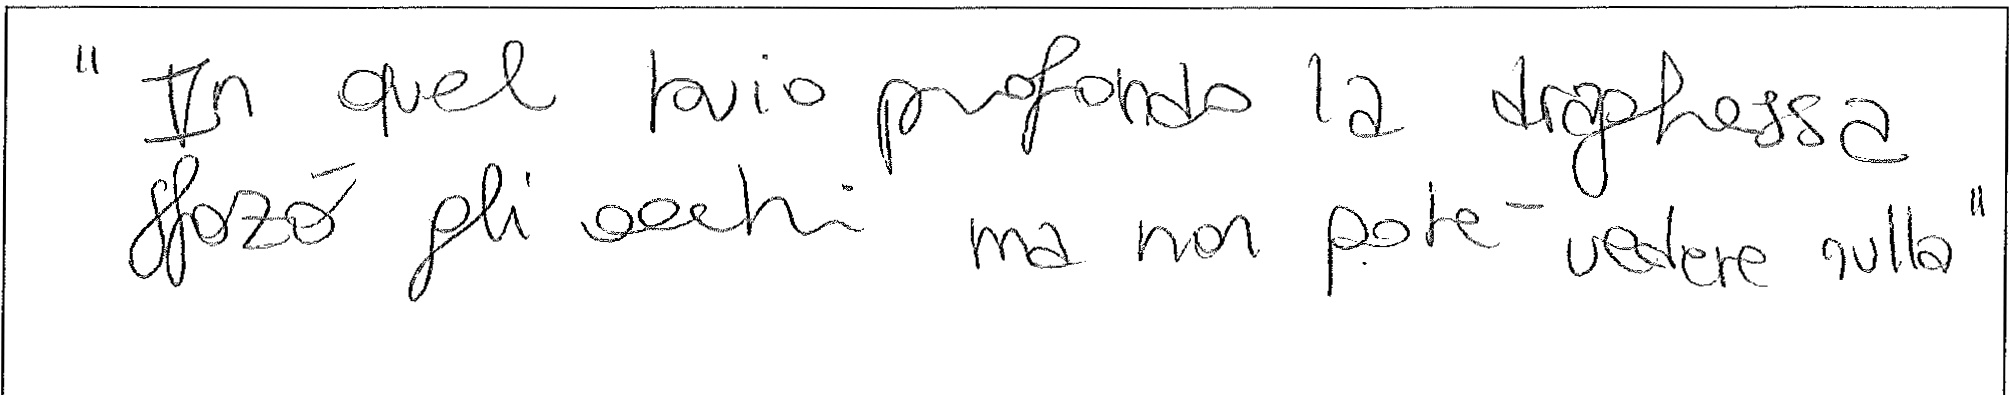 "In quel buio profondo la draghessa
sforzò gli occhi ma non poté vedere nulla"